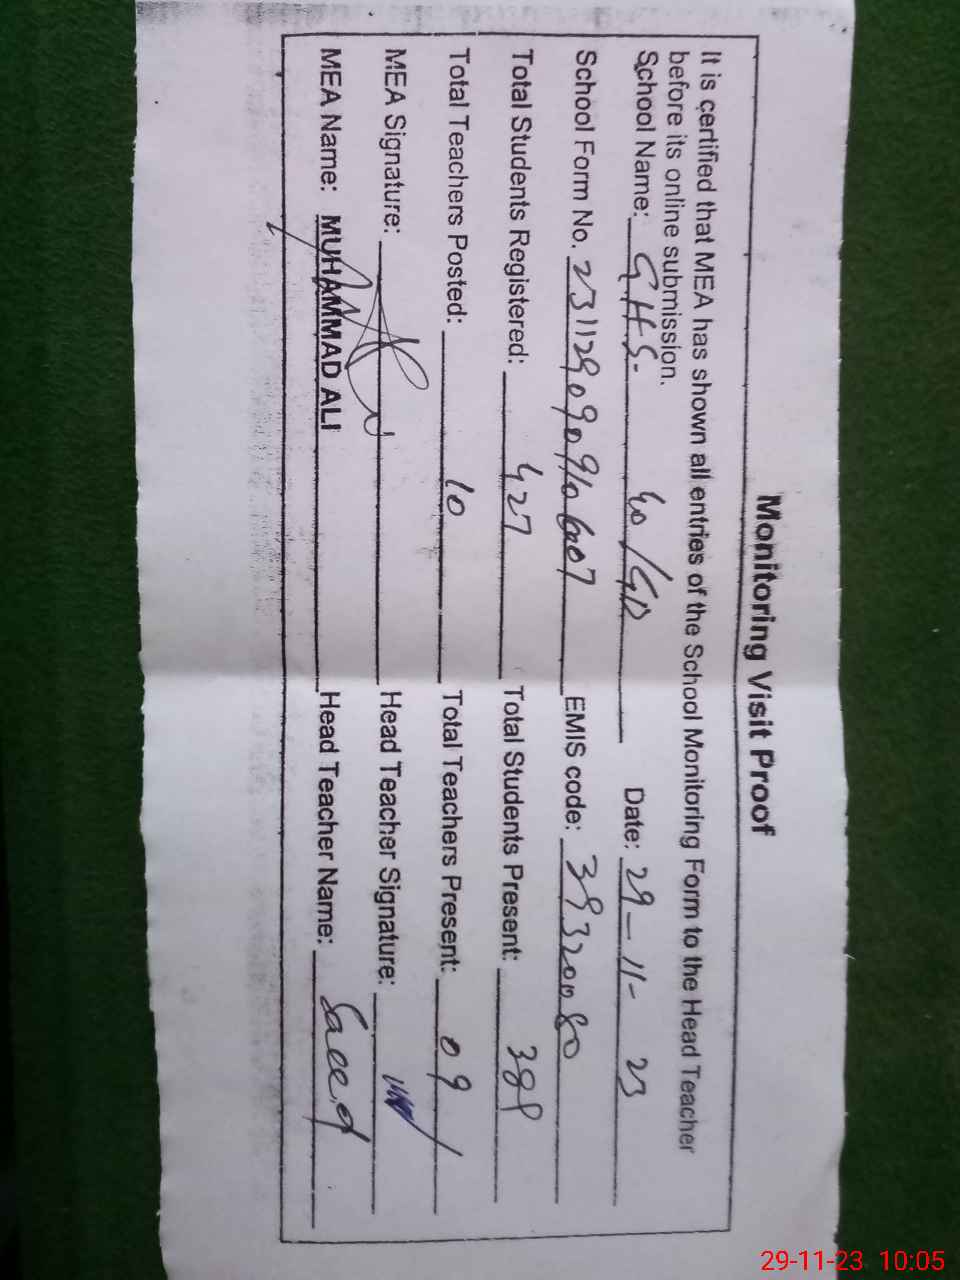 Monitoring Visit Proof
It is certified that MEA has shown all entries of the School Monitoring Form to the Head Teacher
before its online submission.
School Name: G.H.S. 40/GD Date: 29-11-23
School Form No. EMIS code: 39320080
Total Students Registered: 427 Total Students Present:
Total Teachers Posted: 10 Total Teachers Present: 09
MEA Signature: Head Teacher Signature:
MEA Name: MUHAMMAD ALI Head Teacher Name: Saeed
29-11-23 10:05